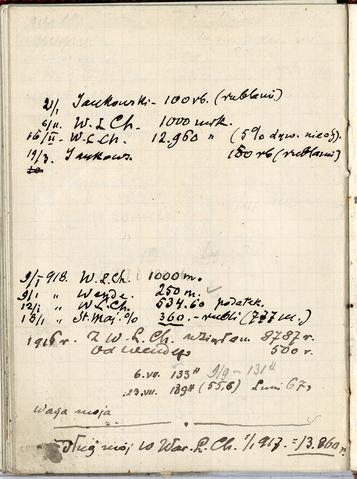 2/I Jankowski - 100 rb. (rublami)
6/II. W. Ł. Ch. 1000 mrk.
16/II - W. Ł. Ch. 12.960 " (5% dyw.
19/3. Jankows. 100 rb (rublami)
9/I 918. W. Ł. Ch. 1000 m.
9/I " Wende. 250 m.
12/I " W. Ł. Ch. 534.60 podatek.
18/I " St. Maj. % 360.- rubli (777 m.)
1916 r. Z W. Ł. Ch. wziąłem 8787 r.
Od Wendego 500 r.
6.VII. 133 # 9/9 - 131 #
23.VII. 139 # (55,6) 67,
Waga moja
Dług mój w War. Ł. Ch. 1/I 917. = 13.860 r.